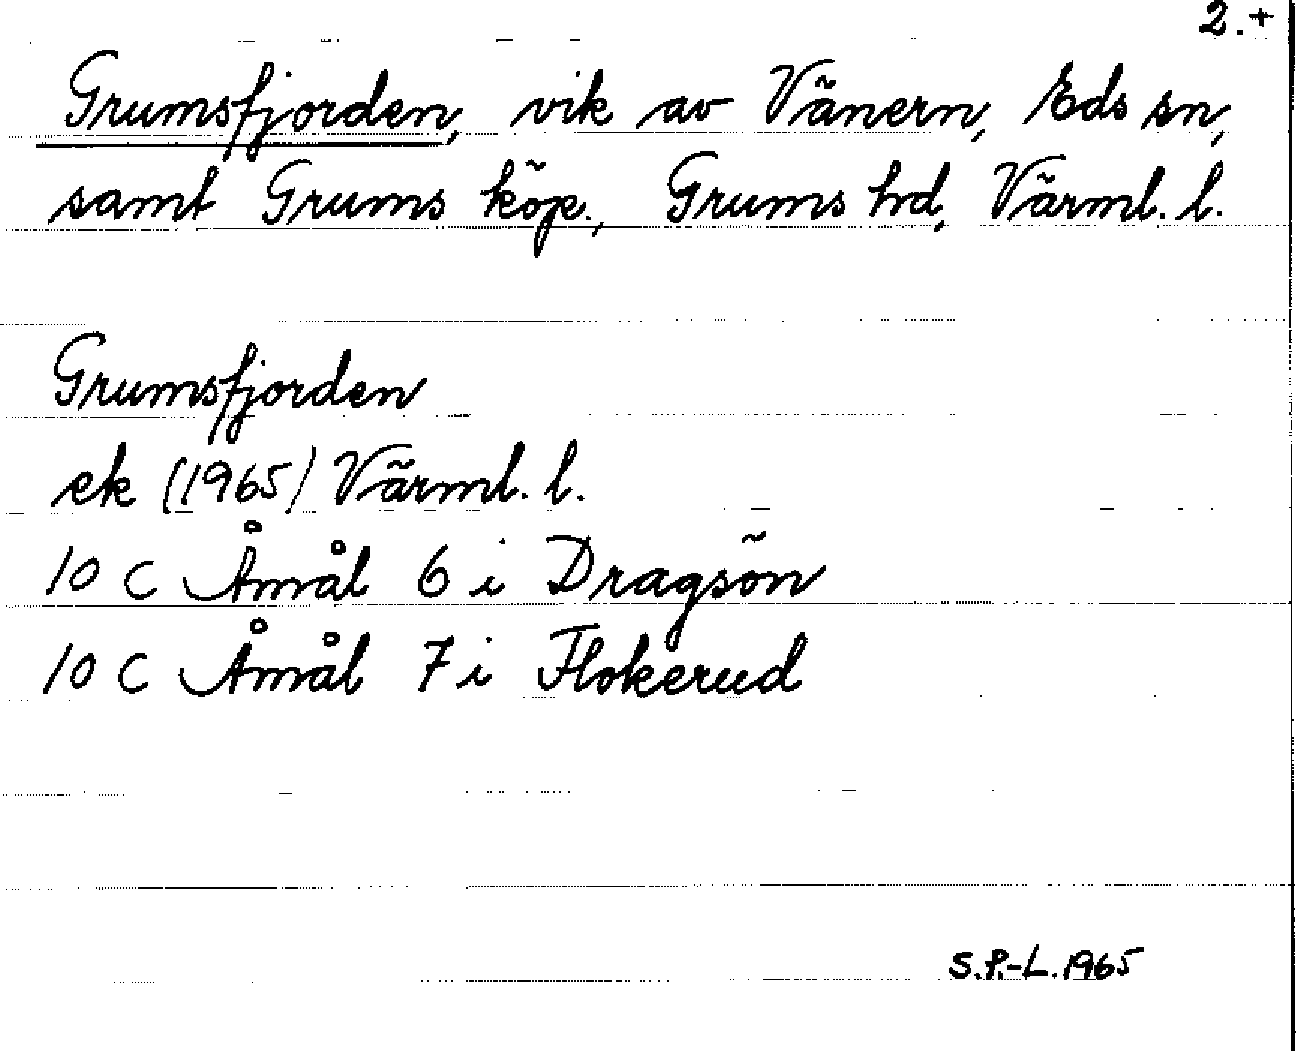 2.+
Grumsfjorden, vik av Vänern, Eds sn,
samt Grums köp., Grums hd, Värml. l.
Grumsfjorden
ek (1965) Värml. l.
10 C Åmål 6 i Dragsön
10 C Åmål 7 i Flokerud
S.P.-L. 1965